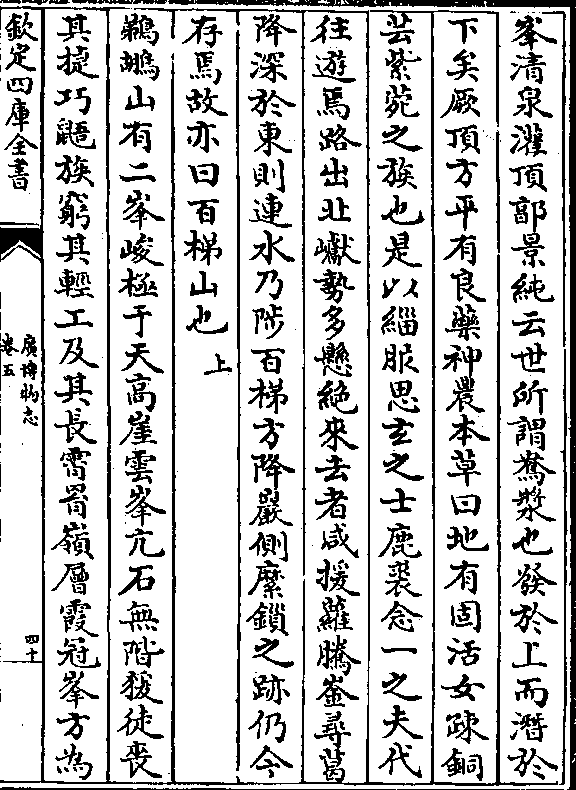 峯清泉灌頂郭景純云世所謂鴦漿也發於上而潛於
下矣厥頂方平有良藥神農本草曰地有固活女疎銅
芸紫菀之族也是以緇服思玄之士鹿裘念一之夫代
往遊焉路出北巘勢多懸絶來去者咸援蘿騰崟尋葛
降深於東則連水乃陟百梯方降巖側縻鎖之跡仍今
存焉故亦曰百梯山也上
鵜鶘山有二峯峻極于天高崖雲峯亢石無階猨徒喪
其捷巧鼯族窮其輕工及其長霄冐嶺層霞冠峯方為
欽定四庫全書
廣博物志
卷五
四十